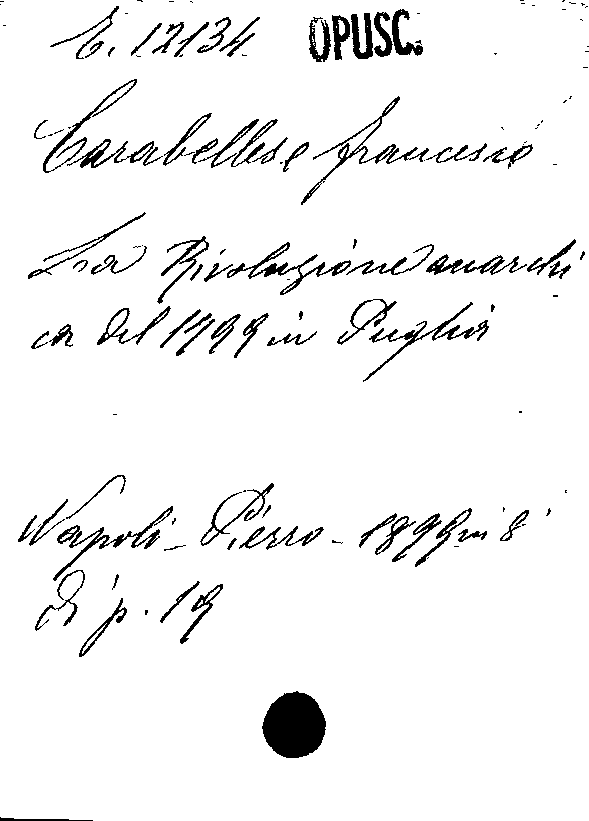 E. 12134 OPUSC.
Carabellese Francesco
La Rivoluzione anarchi
ca del 1799 in Puglia
Napoli - Pierro - 1899 in 8°
di p. 19